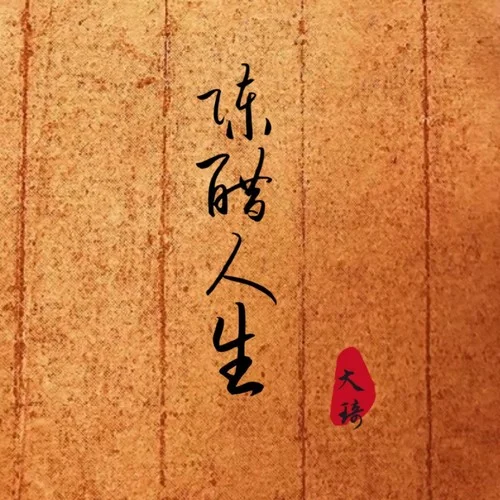 陈醋人生
大琦